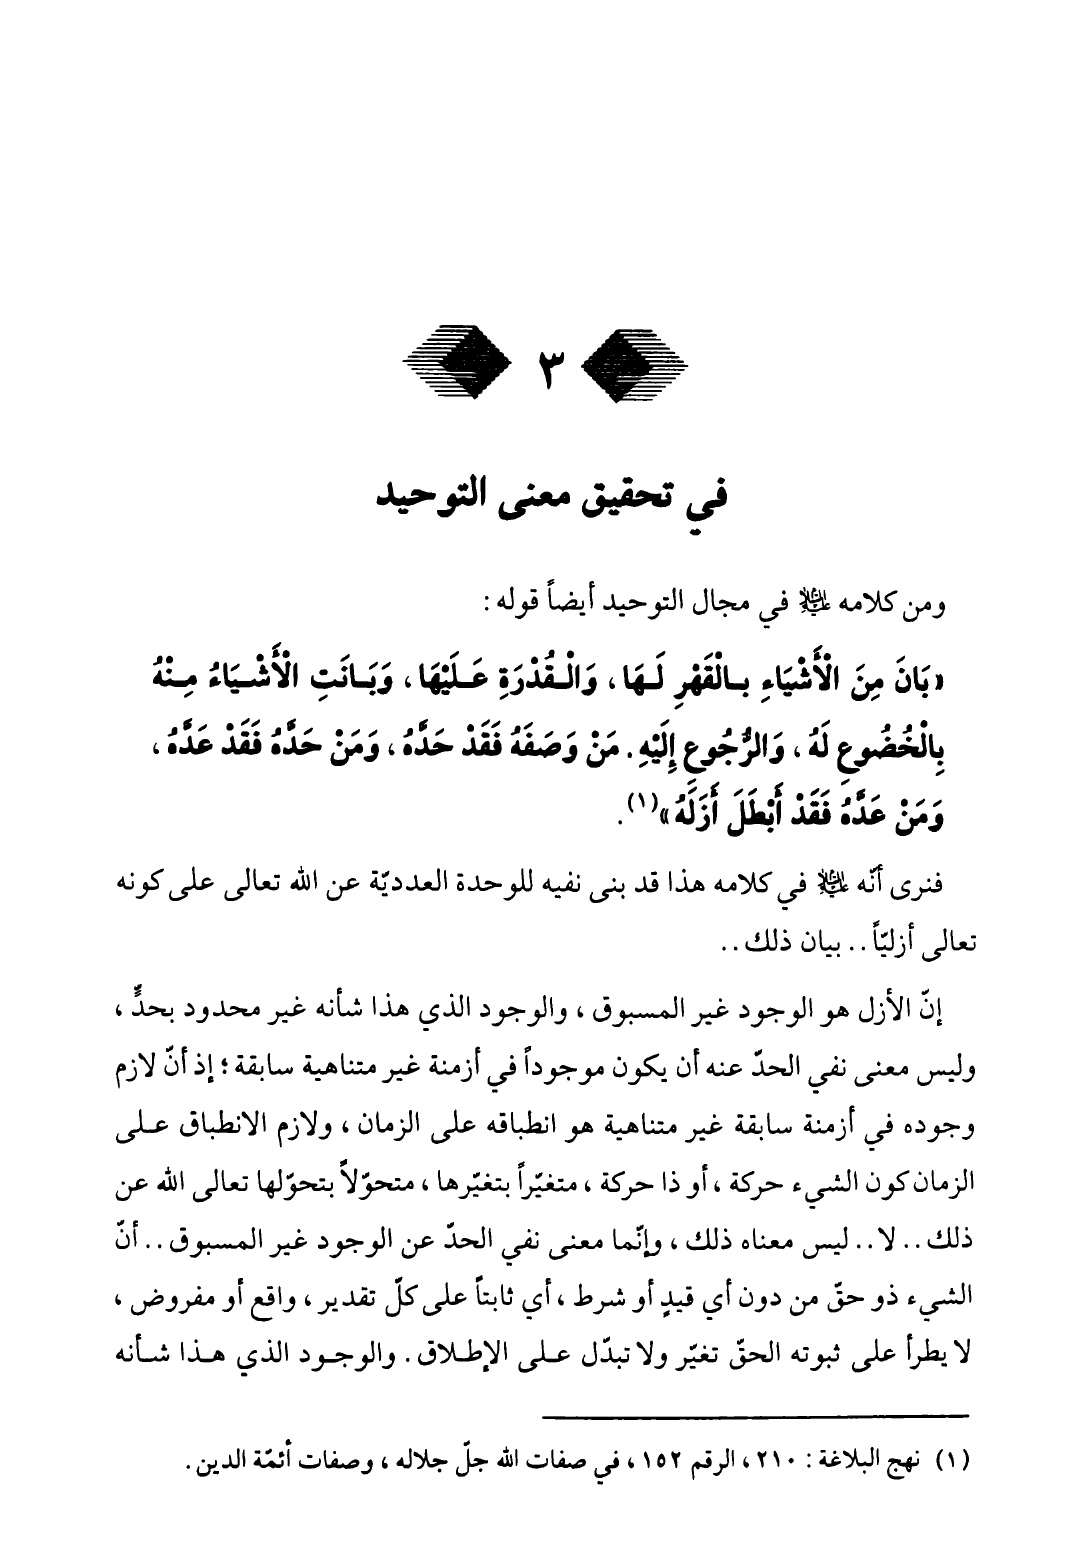 ٣
في تحقيق معنى التوحيد
ومن كلامه عليه السلام في مجال التوحيد أيضاً قوله :
«بَانَ مِنَ الْأَشْيَاءِ بِالْقَهْرِ لَهَا ، وَالْقُدْرَةِ عَلَيْهَا ، وَبَانَتِ الْأَشْيَاءُ مِنْهُ
بِالْخُضُوعِ لَهُ ، وَالرُّجُوعِ إِلَيْهِ . مَنْ وَصَفَهُ فَقَدْ حَدَّهُ ، وَمَنْ حَدَّهُ فَقَدْ عَدَّهُ ،
وَمَنْ عَدَّهُ فَقَدْ أَبْطَلَ أَزَلَهُ»(١).
فنرى أنّه عليه السلام في كلامه هذا قد بنى نفيه للوحدة العدديّة عن الله تعالى على كونه
تعالى أزليّاً . . بيان ذلك . .
إنّ الأزل هو الوجود غير المسبوق ، والوجود الذي هذا شأنه غير محدود بحدٍّ ،
وليس معنى نفي الحدّ عنه أن يكون موجوداً في أزمنة غير متناهية سابقة ؛ إذ أنّ لازم
وجوده في أزمنة سابقة غير متناهية هو انطباقه على الزمان ، ولازم الانطباق على
الزمان كون الشيء حركة ، أو ذا حركة ، متغيّراً بتغيّرها ، متحوّلاً بتحوّلها تعالى الله عن
ذلك . . لا . . ليس معناه ذلك ، وإنّما معنى نفي الحدّ عن الوجود غير المسبوق . . أنّ
الشيء ذو حقّ من دون أي قيدٍ أو شرط ، أي ثابتاً على كلّ تقدير ، واقع أو مفروض ،
لا يطرأ على ثبوته الحقّ تغيّر ولا تبدّل على الإطلاق . والوجود الذي هذا شأنه
(١) نهج البلاغة : ٢١٠ ، الرقم ١٥٢ ، في صفات الله جلّ جلاله ، وصفات أئمّة الدين .